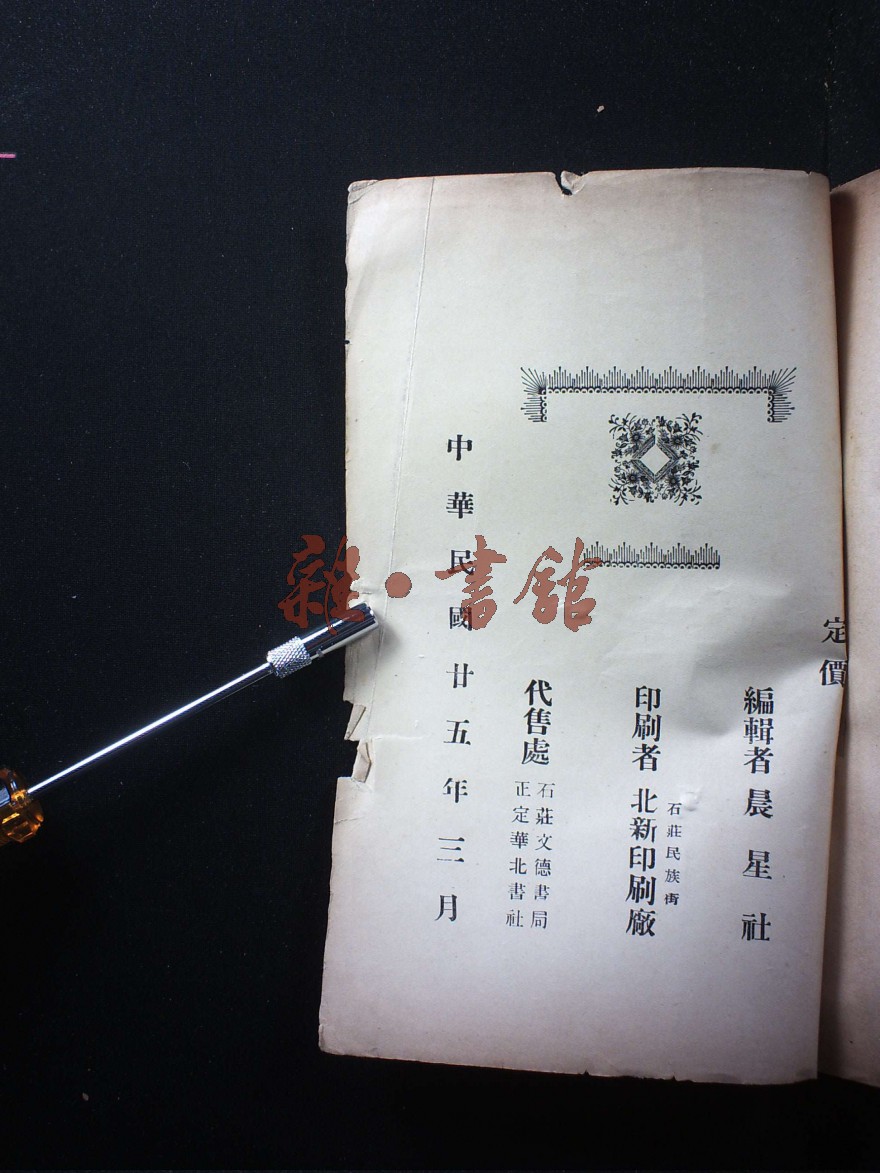 定價
編輯者 晨星社
石莊民族街
印刷者 北新印刷廠
代售處
石莊文德書局
正定華北書社
中華民國廿五年三月
雜·書館